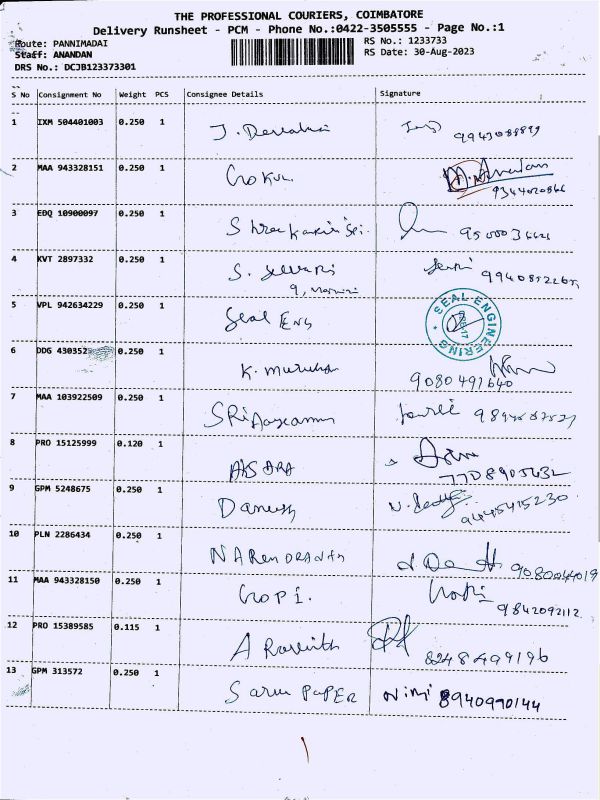 THE PROFESSIONAL COURIERS, COIMBATORE
Delivery Runsheet - PCM - Phone No.:0422-3505555 - Page No.:1
Route: PANNIMADAI RS No.: 1233733
Staff: ANANDAN RS Date: 30-Aug-2023
DRS No.: DCJB123373301
S No Consignment No Weight PCS Consignee Details Signature
1 IXM 504401003 0.250 1 J.
2 MAA 943328151 0.250 1 Gokul
9344020866
3 EDQ 10900097 0.250 1
4 KVT 2897332 0.250 1 S. Selvari
5 VPL 942634229 0.250 1 Seal Eng SEAL ENGINEERING
6 DDG 430352 0.250 1 K. Murugan
9080491640
7 MAA 103922509 0.250 1
8 PRO 15125999 0.120 1 AKSARA
7708905432
9 GPM 5248675 0.250 1 Danush 9445415230
10 PLN 2286434 0.250 1 9080044019
11 MAA 943328150 0.250 1 GOPI. Gopi
9842092112
12 PRO 15389585 0.115 1 A Ravinth
8248499196
13 GPM 313572 0.250 1 Saru PAPER Nimi 8940990144